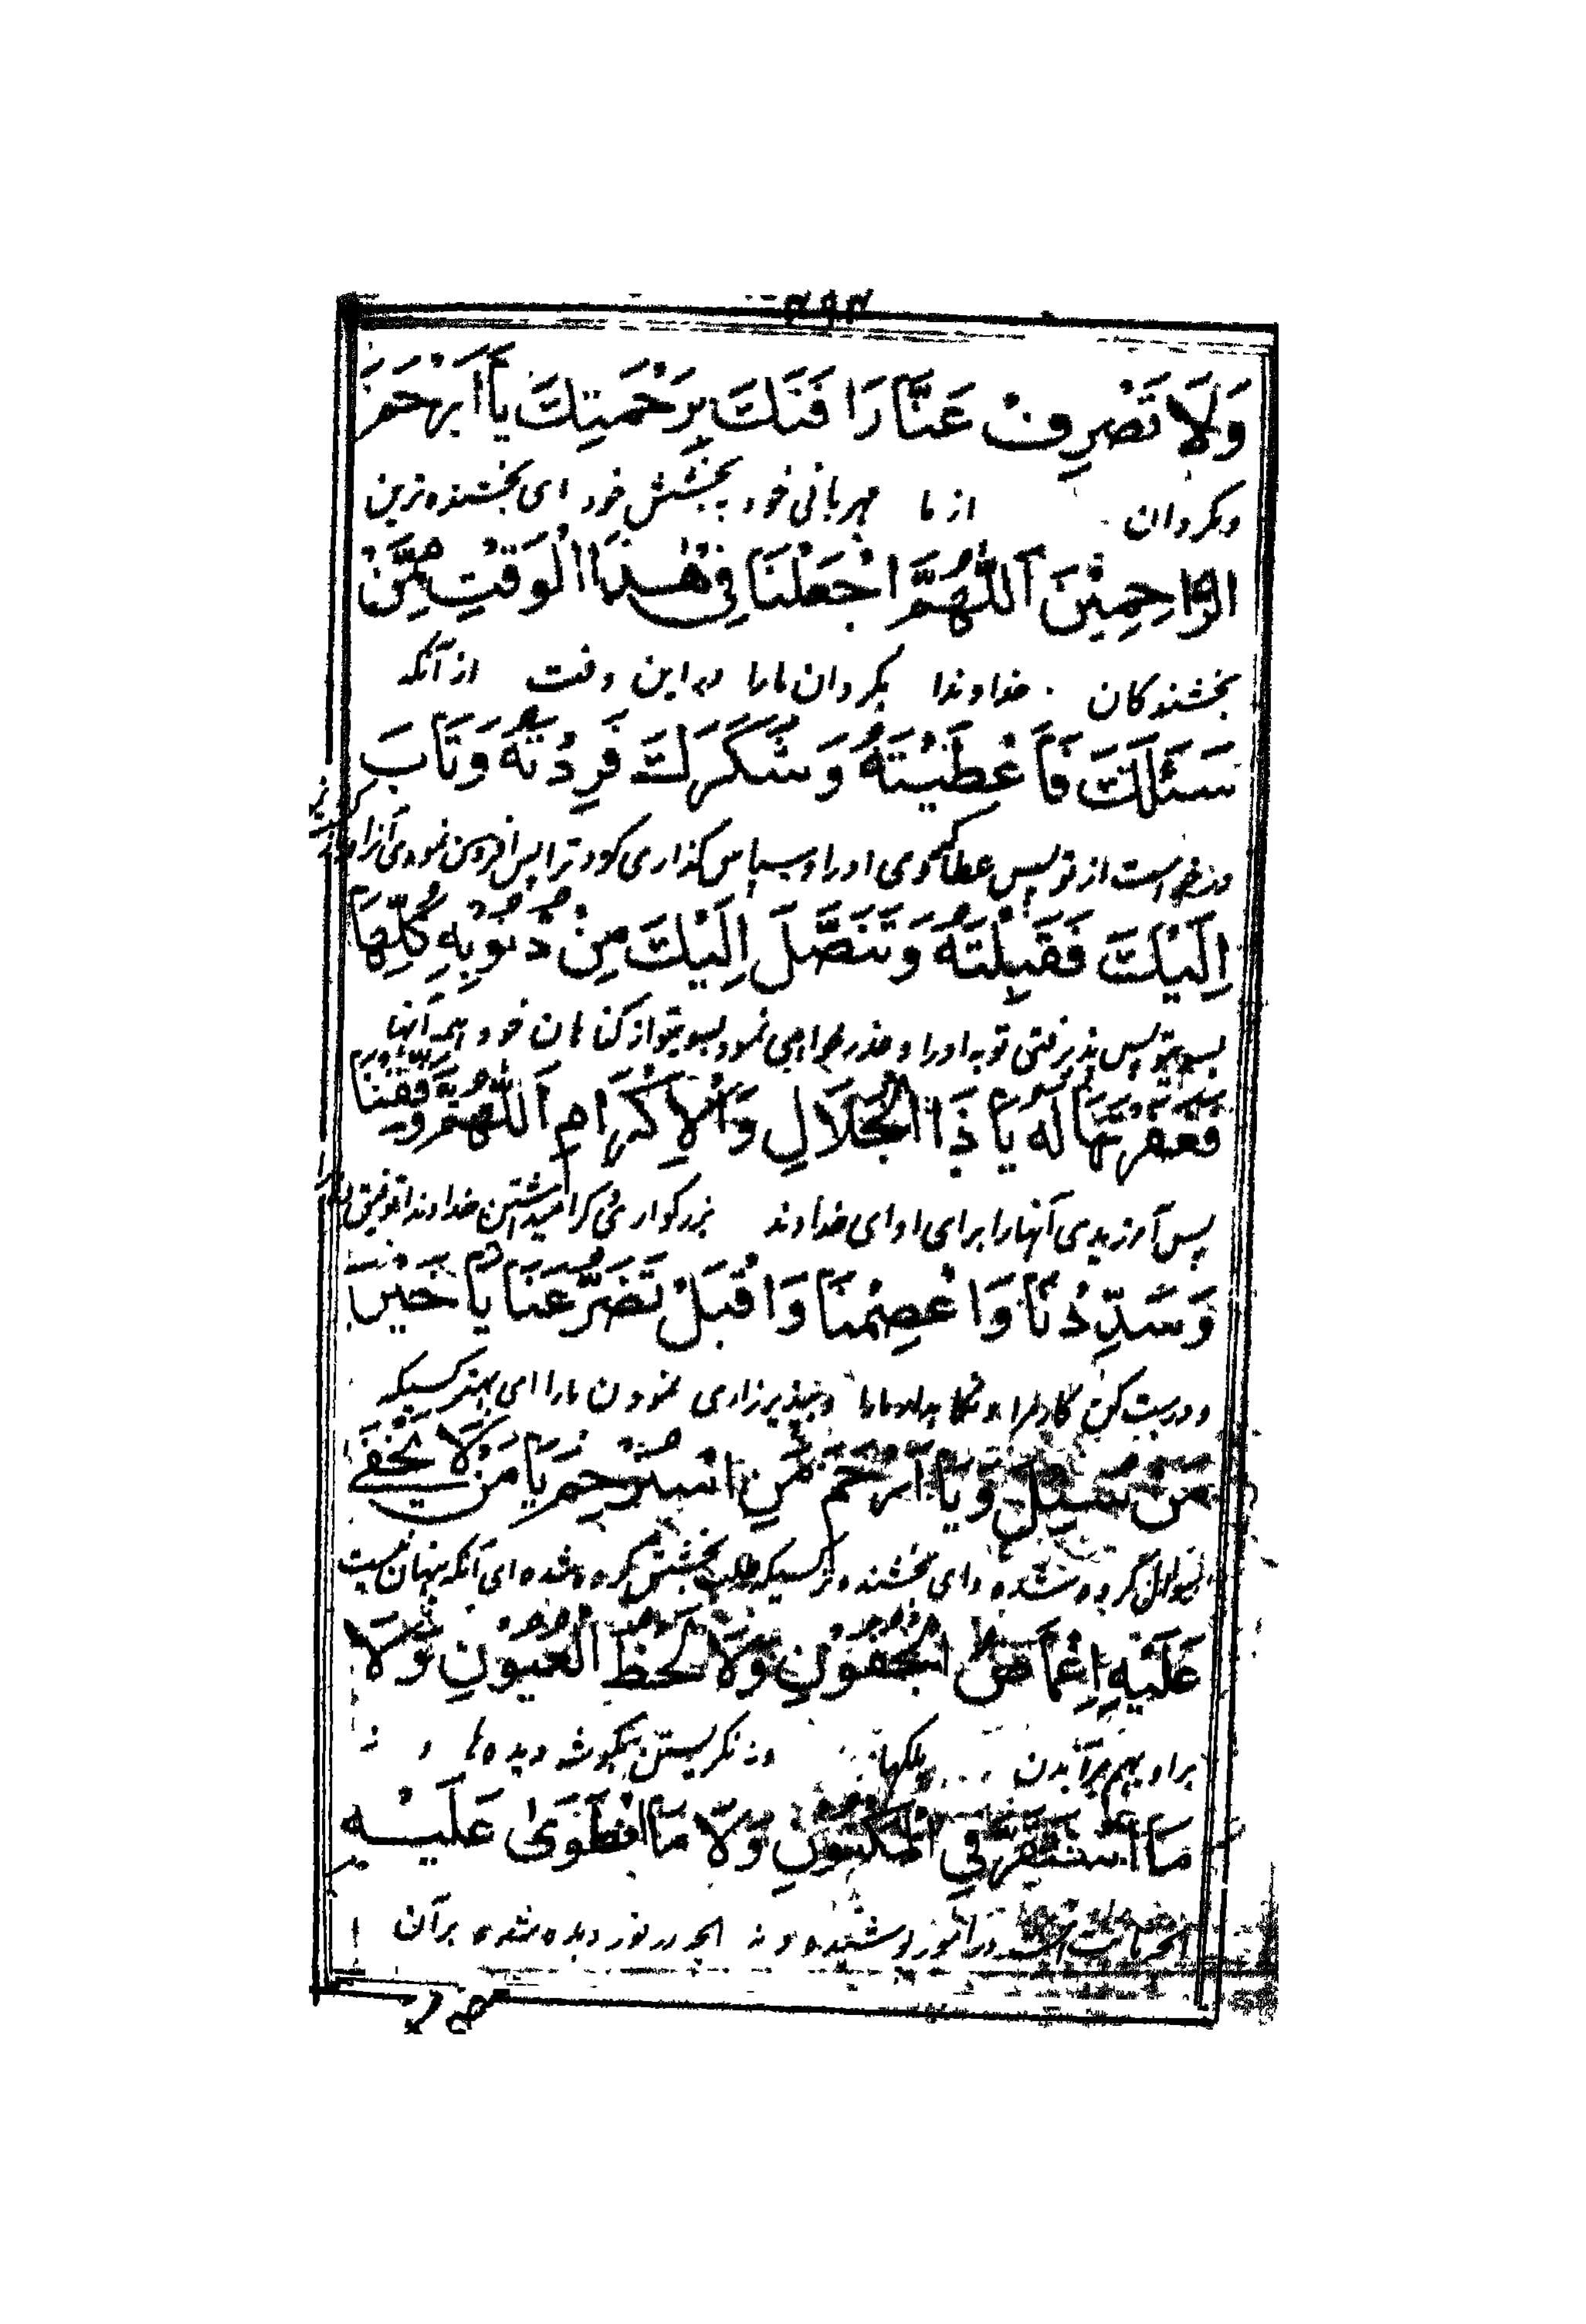 ۳۹۳
وَلَا تَصْرِفْ عَنَّا رَافَتَكَ بِرَحْمَتِكَ يَا اَرْحَمَ
و مگردان از ما مهربانی خود به بخشش خود ای بخشنده ترین
الرَّاحِمِيْنَ اَللّٰهُمَّ اجْعَلْنَا فِیْ هٰذَا الْوَقْتِ مِمَّنْ
بخشندگان خداوندا بگردان مارا در این وقت از آنکه
سَئَلَكَ فَاَعْطَيْتَهُ وَشَكَرَكَ فَزِدْتَهُ وَتَابَ
از تو پس عطا کردی اورا و سپاس گذاری کرد ترا پس افزون نمودی آنرا و
اِلَيْكَ فَقَبِلْتَهُ وَتَنَصَّلَ اِلَيْكَ مِنْ ذُنُوْبِهِ كُلِّهَا
بسویتو پس پذیرفتی توبه اورا و عذر خواهی نمود بسویتو از گناهان خود همه آنها
فَغَفَرْتَهَا لَهُ يَا ذَا الْجَلَالِ وَالْاِكْرَامِ اَللّٰهُمَّ وَفِّقْنَا
پس آمرزیدی آنهارا برای او ای خداوند بزرگواری و گرامیداشتن خداوندا توفیق
وَسَدِّدْنَا وَاعْصِمْنَا وَاقْبَلْ تَضَرُّعَنَا يَا خَيْرَ
و درست کن مارا و بپذیر زاری نمودن مارا ای بهتر کسیکه
مَنْ سُئِلَ وَيَا اَرْحَمَ مَنِ اسْتُرْحِمَ يَا مَنْ لَا يَخْفٰى
کرده شده و ای بخشنده تر کسیکه طلب بخشش کرده شده ای آنکه پنهان نیست
عَلَيْهِ اِغْمَاضُ الْجُفُوْنِ وَلَا لَحْظُ الْعُيُوْنِ وَلَا
بر او بهم برآمدن پلکها و نه نگریستن بگوشه دیده ها و نه
مَا اسْتَقَرَّ فِي الْمَكْنُوْنِ وَلَا مَا انْطَوٰى عَلَيْهِ
پوشیده و نه آنچه در نور دیده شده بر آن